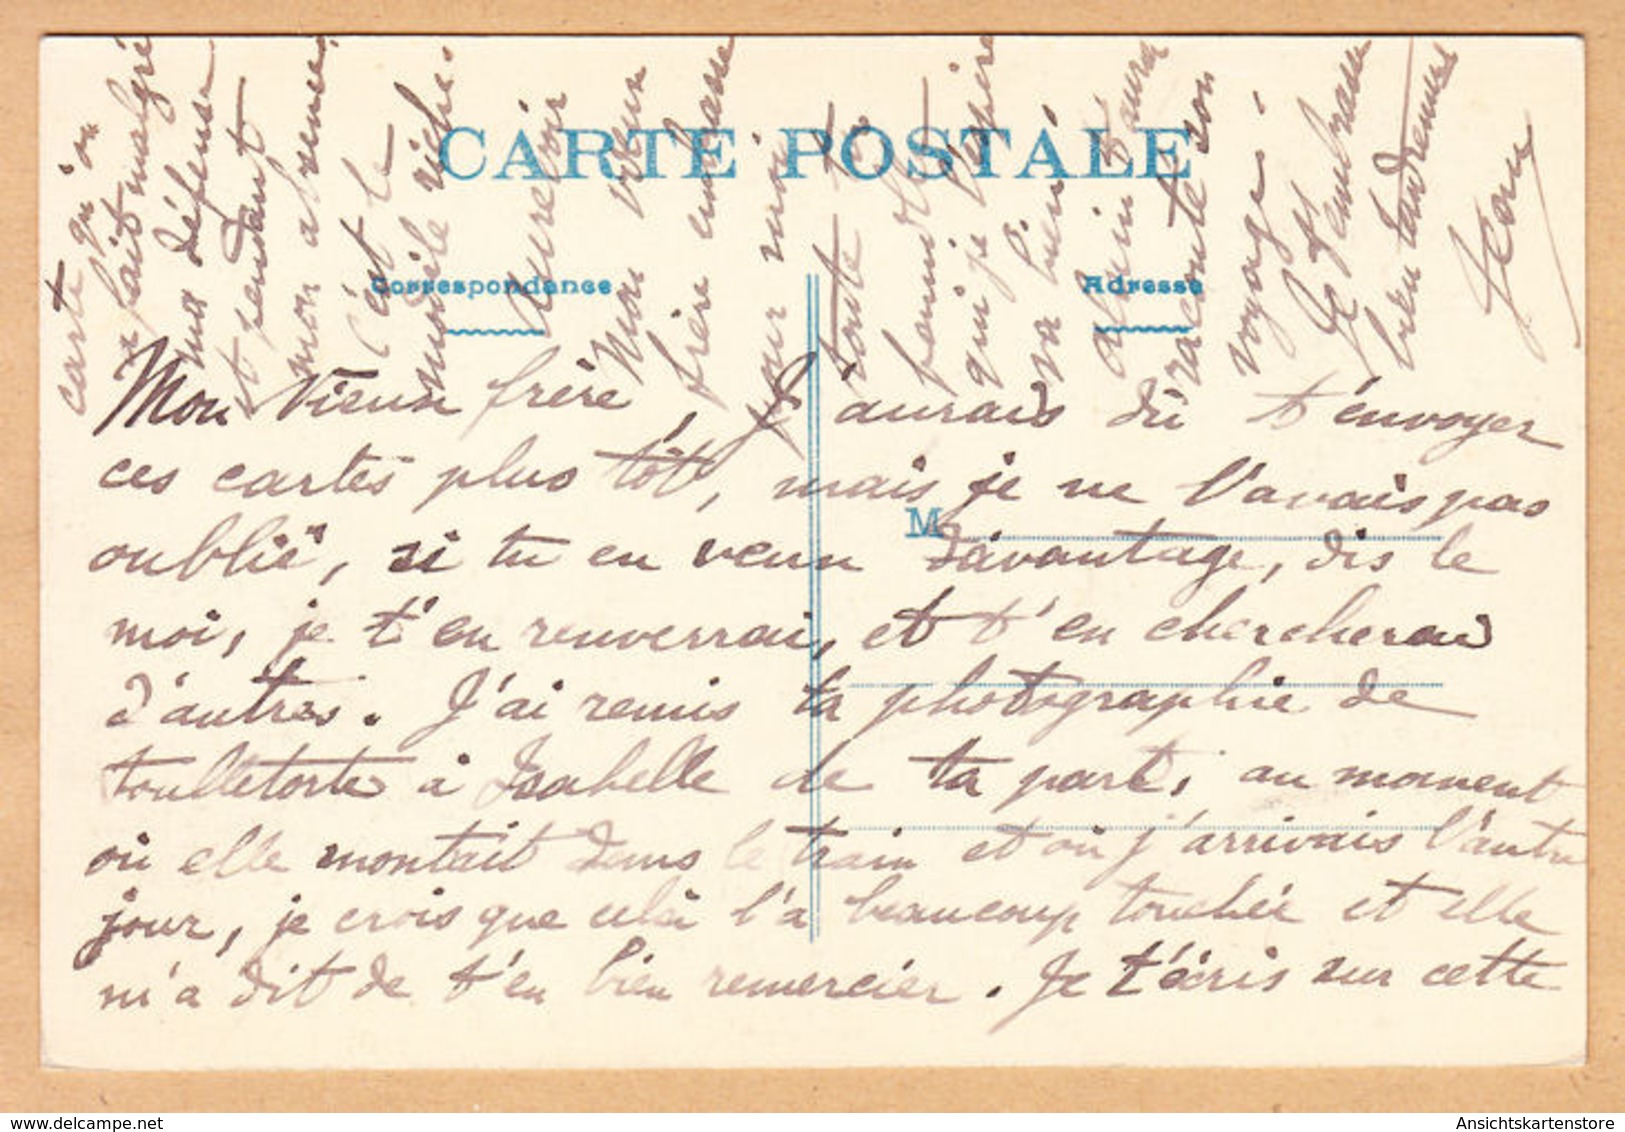 CARTE POSTALE
Correspondance
Adresse
M
Mon vieux frère, J'aurais dû t'envoyer
ces cartes plus tôt, mais je ne l'avais pas
oublié, si tu en veux davantage, dis le
moi, je t'en renverrai, et t'en chercherais
d'autres. J'ai remis ta photographie de
à Isabelle de ta part, au moment
où elle montait dans le train et où j'arrivais l'autre
jour, je crois que celà l'a beaucoup touchée et elle
m'a dit de t'en bien remercier. Je t'écris sur cette
carte qu'on
a fait malgré
ma défense
et pendant
mon absence,
C'est le
modèle riche.
Au revoir
Mon vieux
frère embrasse
pour moi
toute ta
famille
qui je espère
va bien
Alain t'aura
raconté son
voyage.
Je t'embrasse
bien tendrement
Jean
Ansichtskartenstore